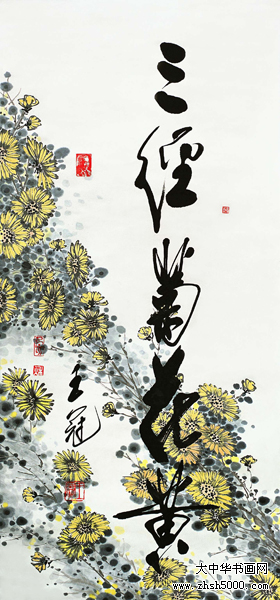 三径菊花黄
王冠
大中华书画网
www.zhsh5000.com